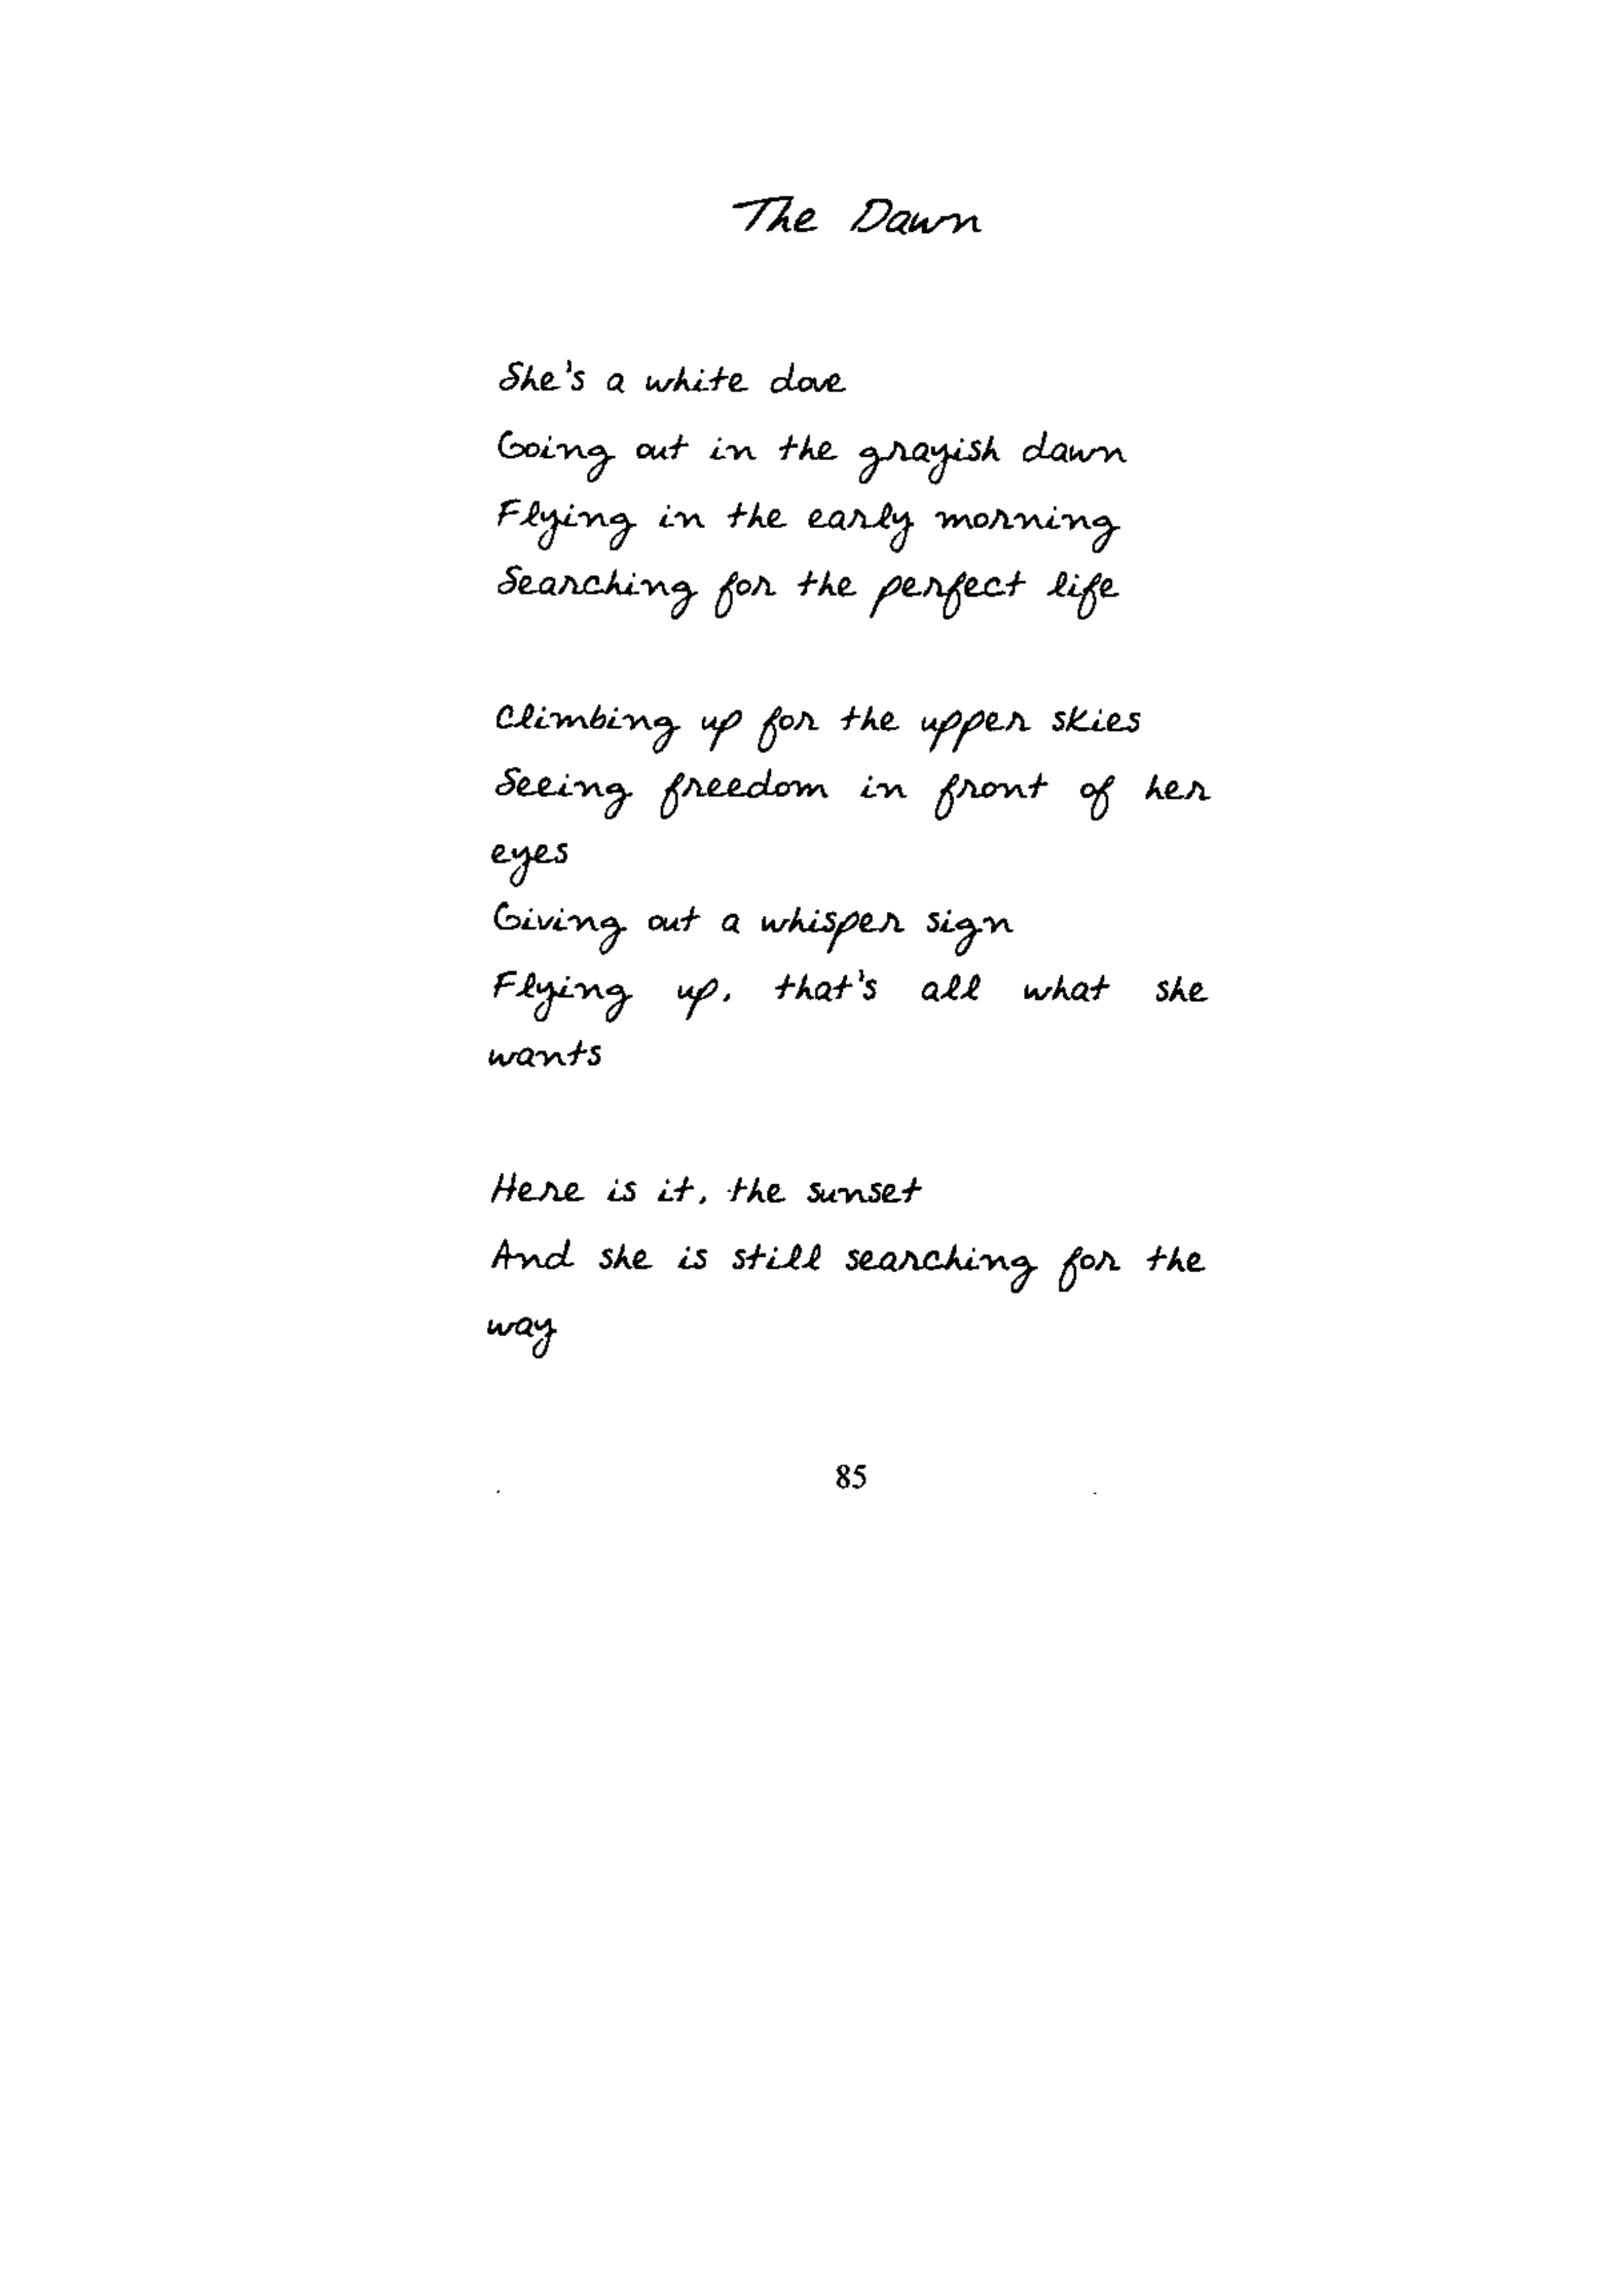 The Dawn
She's a white dove
Going out in the grayish dawn
Flying in the early morning
Searching for the perfect life
Climbing up for the upper skies
Seeing freedom in front of her
eyes
Giving out a whisper sign
Flying up, that's all what she
wants
Here is it, the sunset
And she is still searching for the
way
85